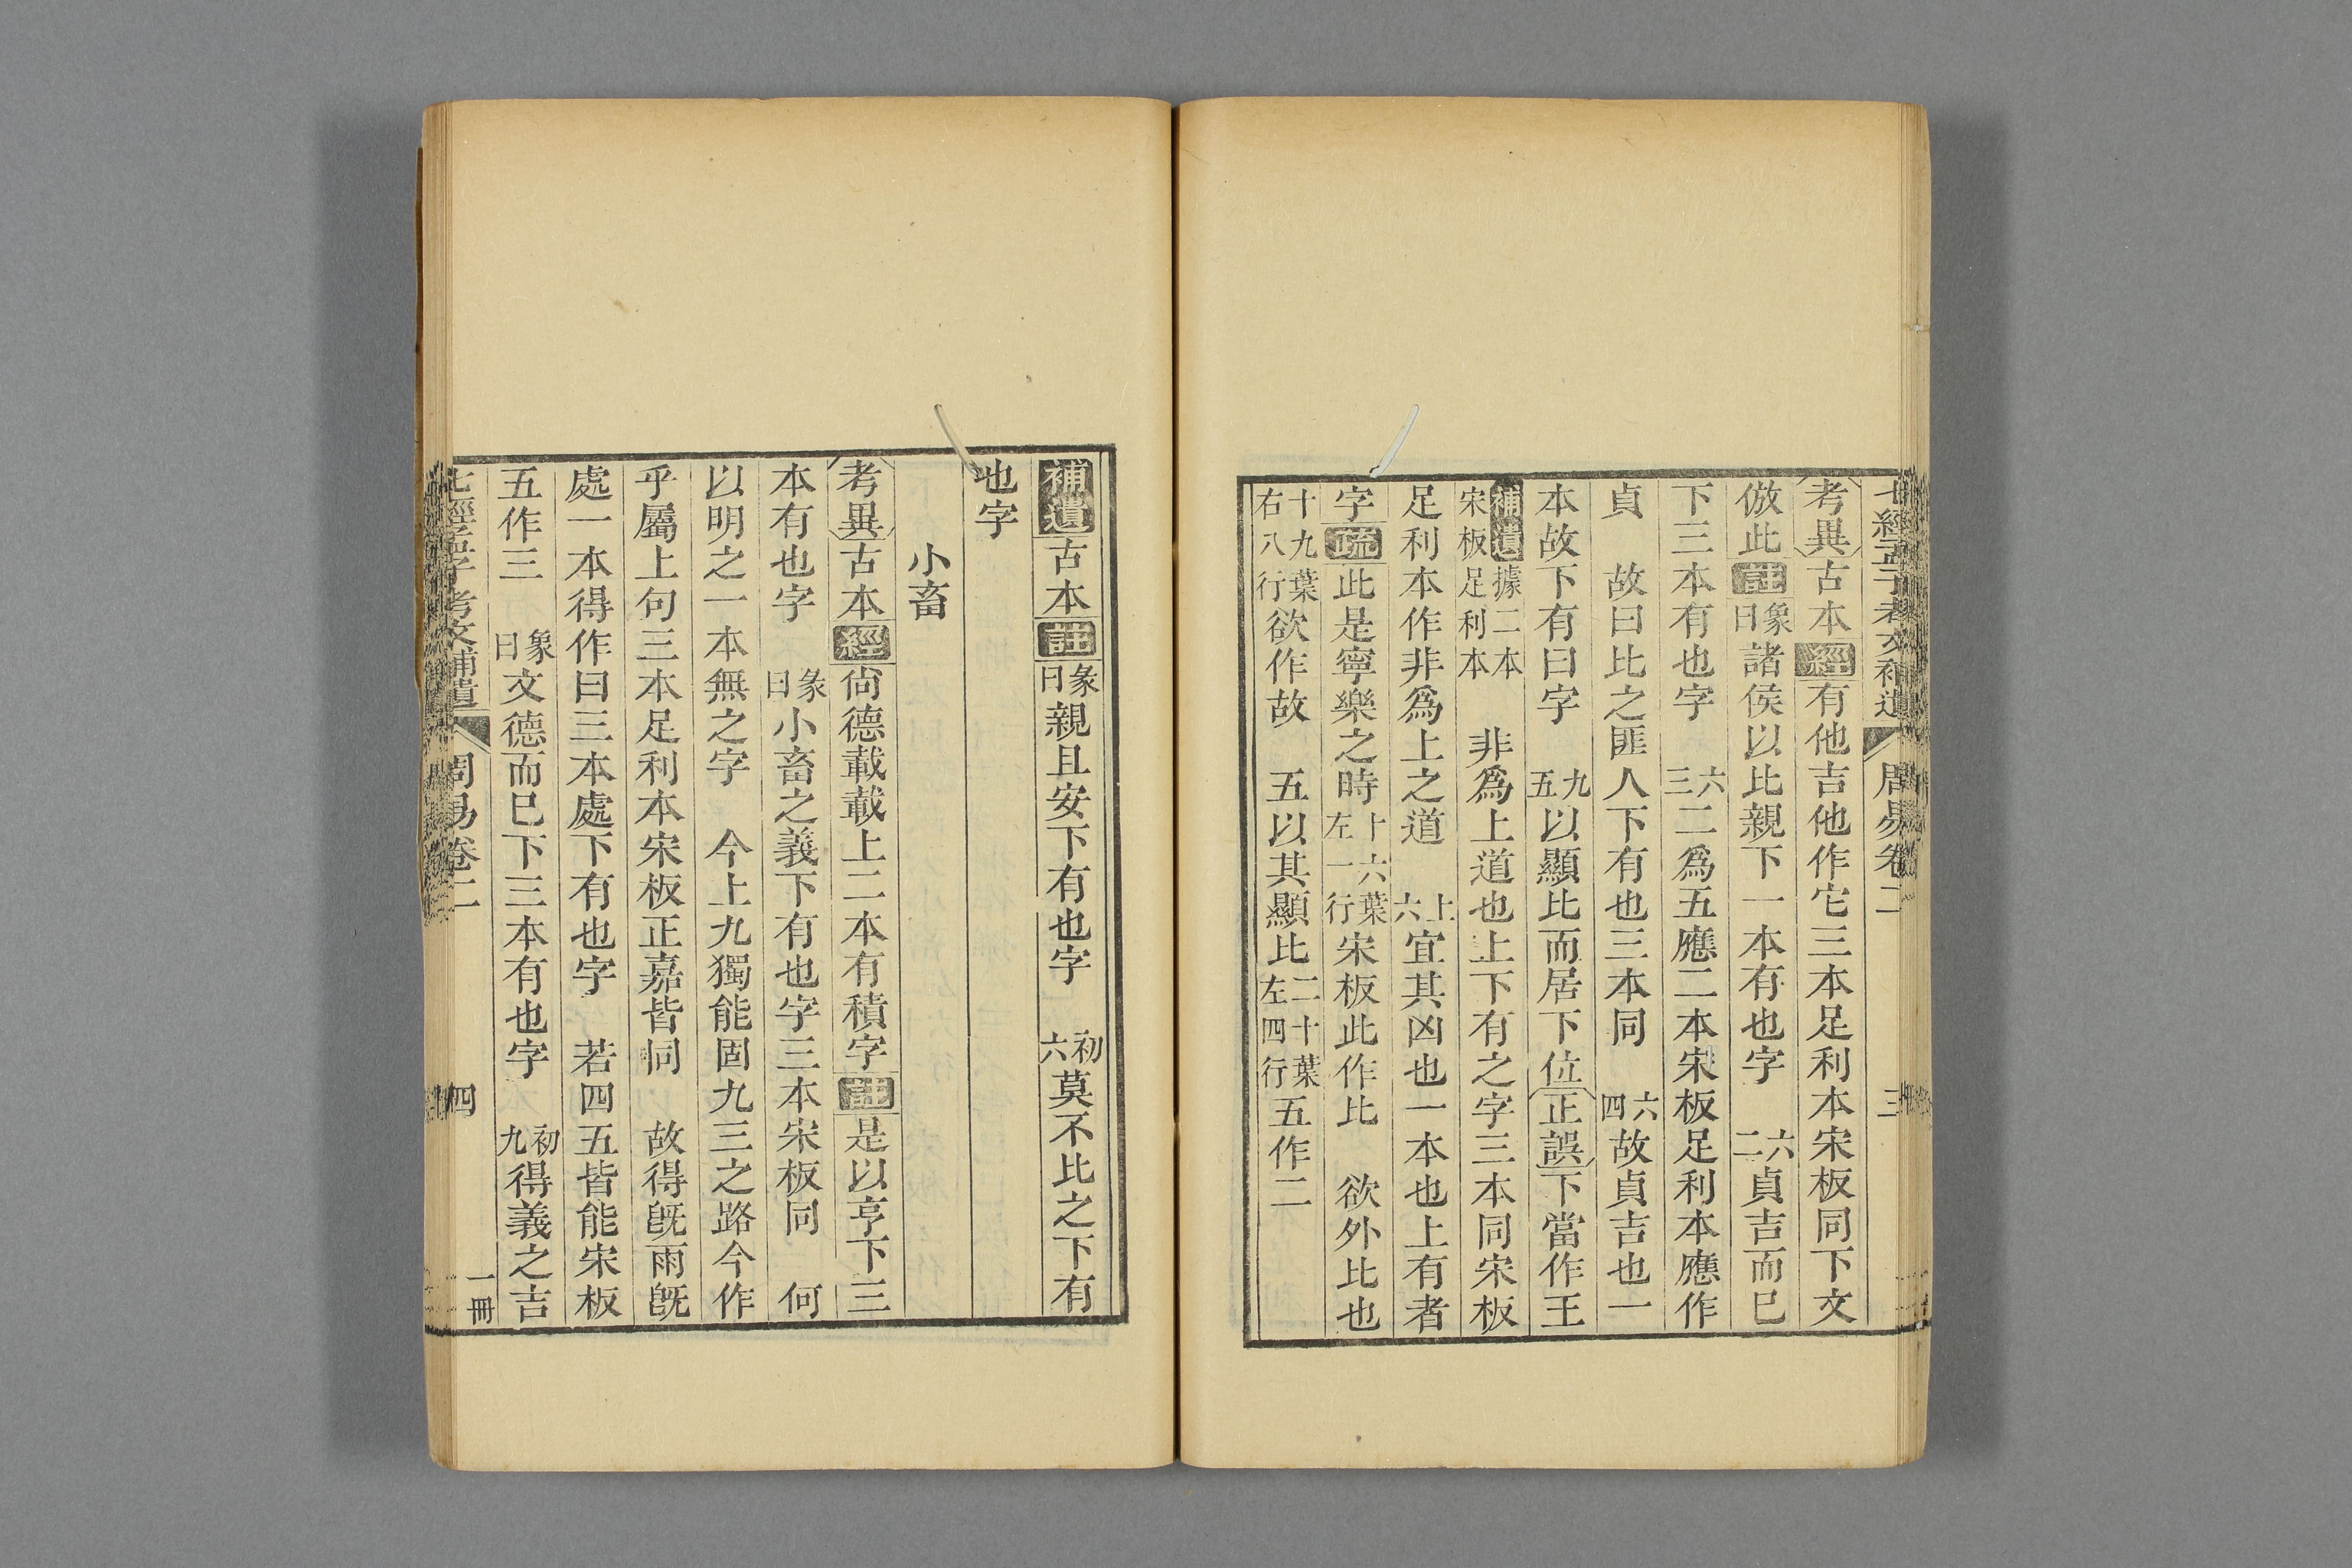 七經孟子考文補遺 周易卷二 三
考異古本經有他吉他作它三本足利本宋板同下文
倣此註象曰諸侯以比親下一本有也字 六二貞吉而已
下三本有也字 六三二爲五應二本宋板足利本應作
貞 故曰比之匪人下有也三本同 六四故貞吉也一
本故下有曰字 九五以顯比而居下位正誤下當作王
補遺據二本宋板足利本 非爲上道也上下有之字三本同宋板
足利本作非爲上之道 上六宜其凶也一本也上有者
字疏此是寧樂之時十六葉左一行宋板此作比 欲外比也
十九葉右八行欲作故 五以其顯比二十葉左四行五作二
補遺古本註象曰親且安下有也字 初六莫不比之下有
也字
小畜
考異古本經尙德載載上二本有積字註是以亨下三
本有也字 象曰小畜之義下有也字三本宋板同 何
以明之一本無之字 今上九獨能固九三之路今作
乎屬上句三本足利本宋板正嘉皆同 故得旣雨旣
處一本得作曰三本處下有也字 若四五皆能宋板
五作三 象曰文德而已下三本有也字 初九得義之吉
七經孟子考文補遺 周易卷二 四 一冊